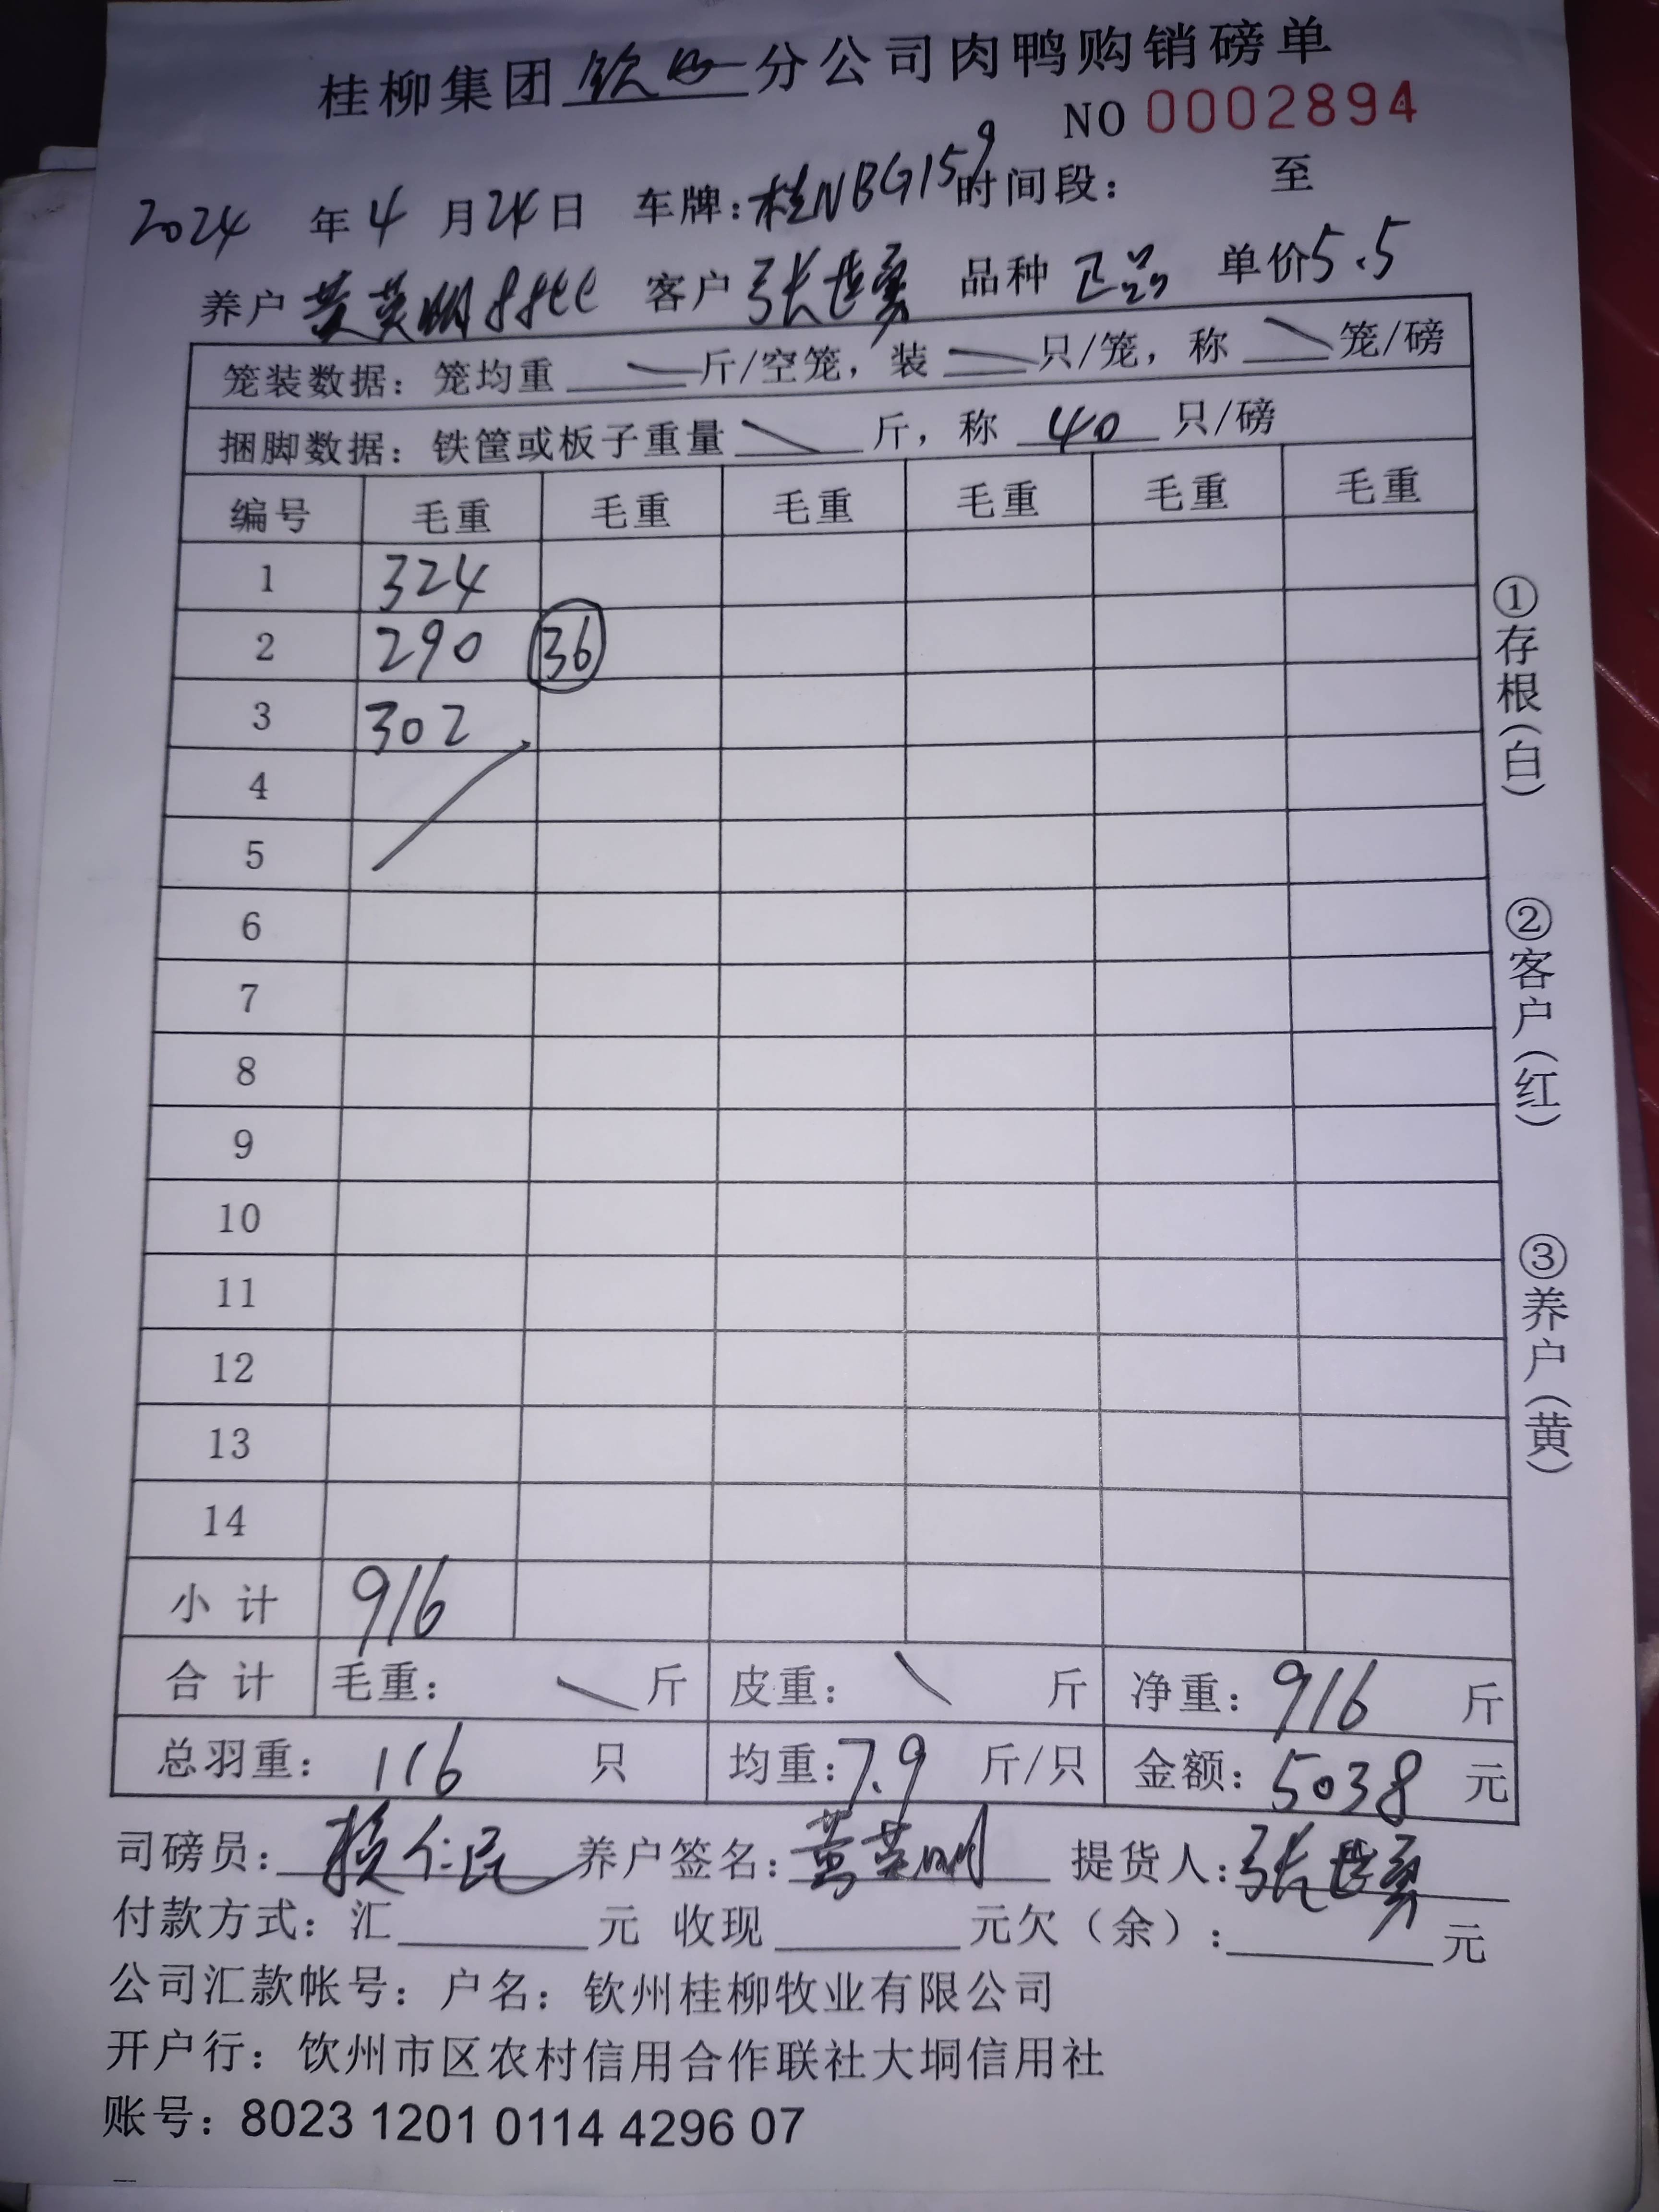 桂柳集团钦州分公司肉鸭购销磅单
NO 0002894
2024年4月24日 车牌:桂NBG159时间段: 至
养户 黄英明 客户 张世勇 品种 正品 单价5.5
笼装数据:笼均重 斤/空笼,装 只/笼,称 笼/磅
捆脚数据:铁筐或板子重量 斤,称 40 只/磅
编号 毛重 毛重 毛重 毛重 毛重 毛重
1 324
2 290 36
3 302
4
5
6
7
8
9
10
11
12
13
14
小计 916
合计 毛重: 斤 皮重: 斤 净重:916 斤
总羽重:116 只 均重:7.9 斤/只 金额:5038 元
司磅员:赖仁民 养户签名:黄英明 提货人:张世勇
付款方式:汇 元 收现 元欠(余): 元
公司汇款帐号:户名:钦州桂柳牧业有限公司
开户行:饮州市区农村信用合作联社大垌信用社
账号:8023 1201 0114 4296 07
①存根(白)
②客户(红)
③养户(黄)